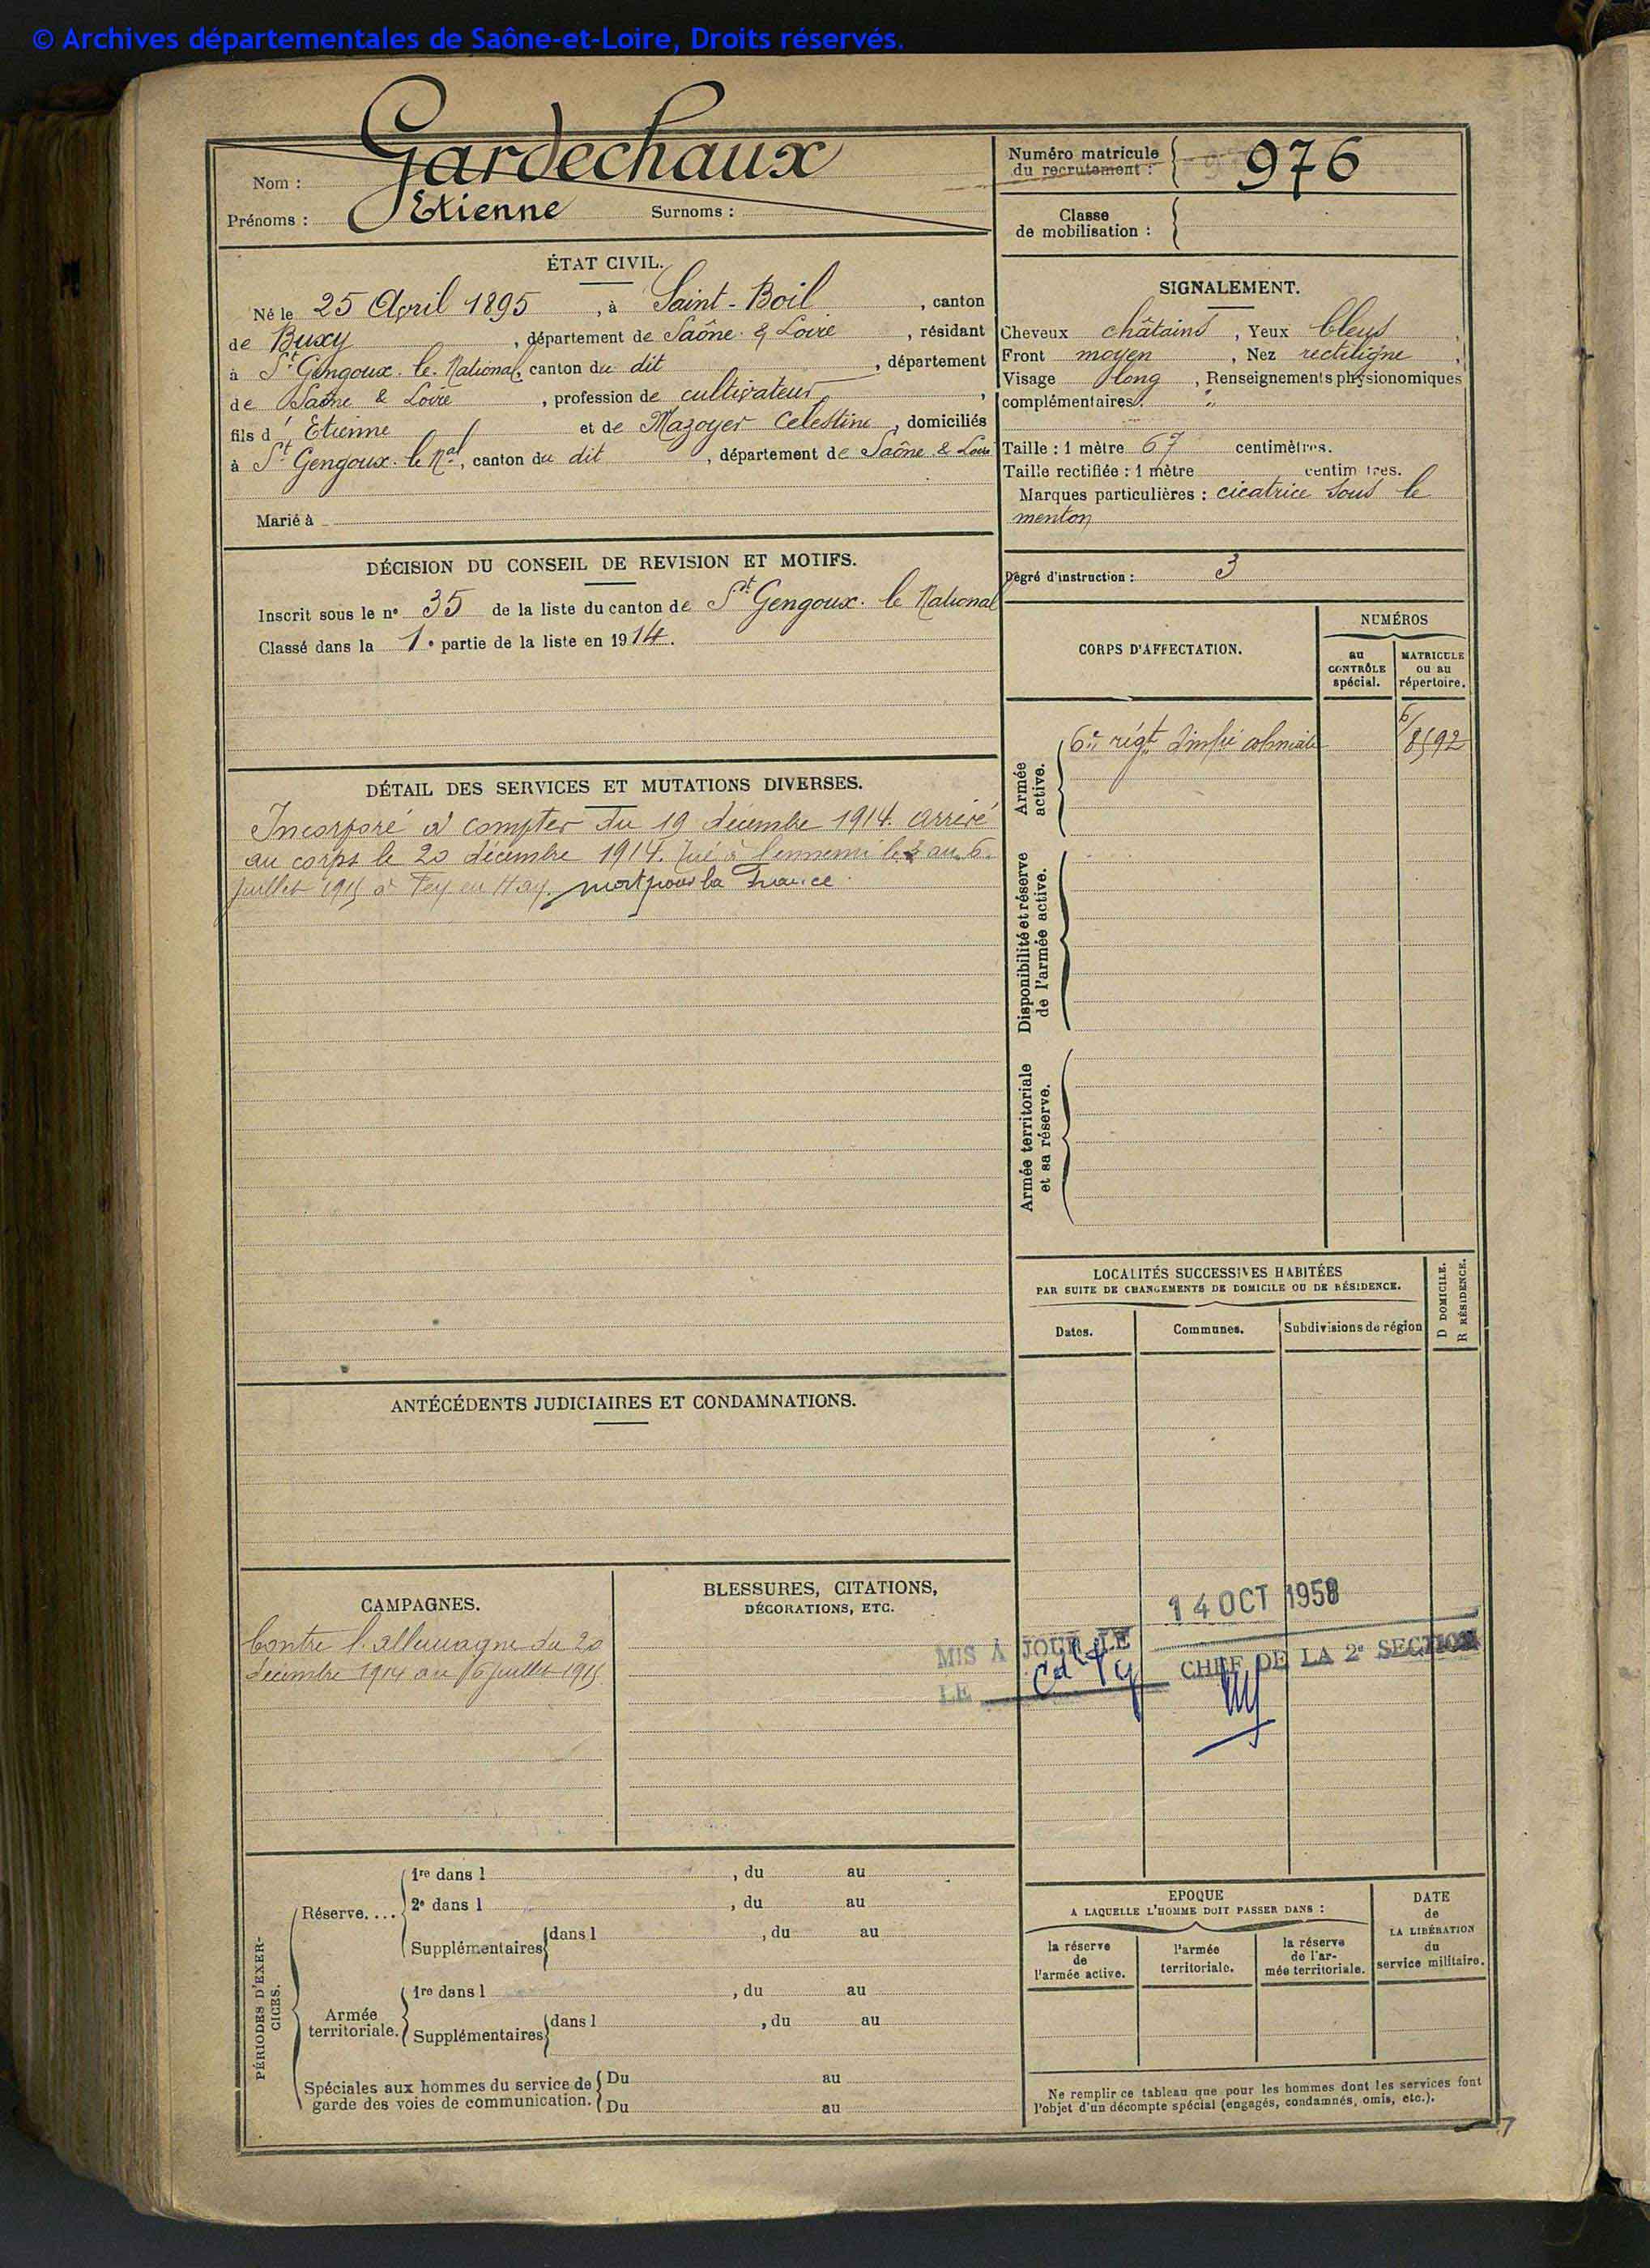 © Archives départementales de Saône-et-Loire, Droits réservés.
Nom : Gardechaux
Prénoms : Etienne Surnoms :
Numéro matricule du recrutement : 976
Classe de mobilisation :
ÉTAT CIVIL.
Né le 25 Avril 1895, à Saint-Boil, canton
de Buxy, département de Saône & Loire, résidant
à St Gengoux-le-National, canton du dit, département
de Saône & Loire, profession de cultivateur,
fils d'Etienne et de Mazoyer Celestine, domiciliés
à St Gengoux-le Nal, canton du dit, département de Saône & Loire
Marié à
SIGNALEMENT.
Cheveux châtains, Yeux bleus,
Front moyen, Nez rectiligne,
Visage long, Renseignements physionomiques
complémentaires : "
Taille : 1 mètre 67 centimètres.
Taille rectifiée : 1 mètre centimètres.
Marques particulières : cicatrice sous le
menton
DÉCISION DU CONSEIL DE REVISION ET MOTIFS.
Inscrit sous le n° 35 de la liste du canton de St Gengoux-le National
Classé dans la 1e partie de la liste en 1914.
Degré d'instruction : 3
CORPS D'AFFECTATION.
NUMÉROS
au CONTRÔLE spécial.
MATRICULE ou au répertoire.
Armée active.
6e régt d'infie coloniale 6/8592
Disponibilité et réserve de l'armée active.
Armée territoriale et sa réserve.
DÉTAIL DES SERVICES ET MUTATIONS DIVERSES.
Incorporé à compter du 19 décembre 1914. arrivé
au corps le 20 décembre 1914. Tué à l'ennemi le au 6
juillet 1915 à Fey en Hay. mort pour la France.
LOCALITÉS SUCCESSIVES HABITÉES
PAR SUITE DE CHANGEMENTS DE DOMICILE OU DE RÉSIDENCE.
D DOMICILE.
R RÉSIDENCE.
Dates.
Communes.
Subdivisions de région
ANTÉCÉDENTS JUDICIAIRES ET CONDAMNATIONS.
CAMPAGNES.
Contre l'allemagne du 20
décembre 1914 au 6 juillet 1915
BLESSURES, CITATIONS,
DÉCORATIONS, ETC.
14 OCT 1958
MIS À JOUR LE
LE
CHEF DE LA 2e SECTION
PÉRIODES D'EXERCICES.
Réserve....
1re dans l , du au
2e dans l , du au
Supplémentaires dans l , du au
Armée territoriale.
1re dans l , du au
Supplémentaires dans l , du au
Spéciales aux hommes du service de garde des voies de communication.
Du au
Du au
EPOQUE
A LAQUELLE L'HOMME DOIT PASSER DANS :
la réserve de l'armée active.
l'armée territoriale.
la réserve de l'armée territoriale.
DATE de LA LIBÉRATION du service militaire.
Ne remplir ce tableau que pour les hommes dont les services font
l'objet d'un décompte spécial (engagés, condamnés, omis, etc.).